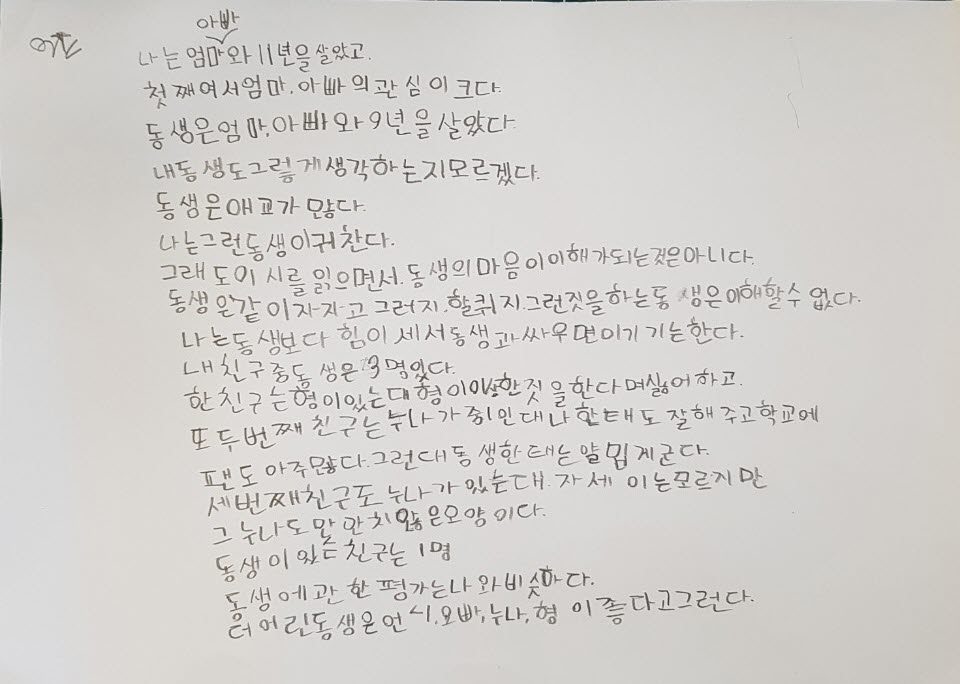 아빠
나는 엄마와 11년을 살았고.
첫째여서 엄마, 아빠의 관심이 크다.
동생은 엄마, 아빠와 9년을 살았다.
내동생도 그렇게 생각하는지 모르겠다.
동생은 애교가 많다.
나는 그런동생이 귀찬다.
그래도 이 시를 읽으면서. 동생의 마음이 이해가되는것은 아니다.
동생은 같이 자자고 그러지. 할퀴지 그런짓을하는 동생은 이해할수 없다.
나는 동생보다 힘이 세서 동생과 싸우면 이기기는한다.
내 친구중 동생은 3명있다.
한친구는 형이있는대 형이 한짓을한다며 싫어하고.
또 두번째 친구는 누나가 중1인대 나한태도 잘해주고 학교에
팬도 아주많다. 그런대 동생한태는 얄밉게군다.
세번째 친구도 누나가 있는대. 자세이는 모르지만
그 누나도 만 안치 않은모양이다.
동생이 있는 친구는 1명
동생에관한 평가는 나와비슷하다.
더어린동생은 언니, 오빠, 누나, 형이 좋다고그런다.